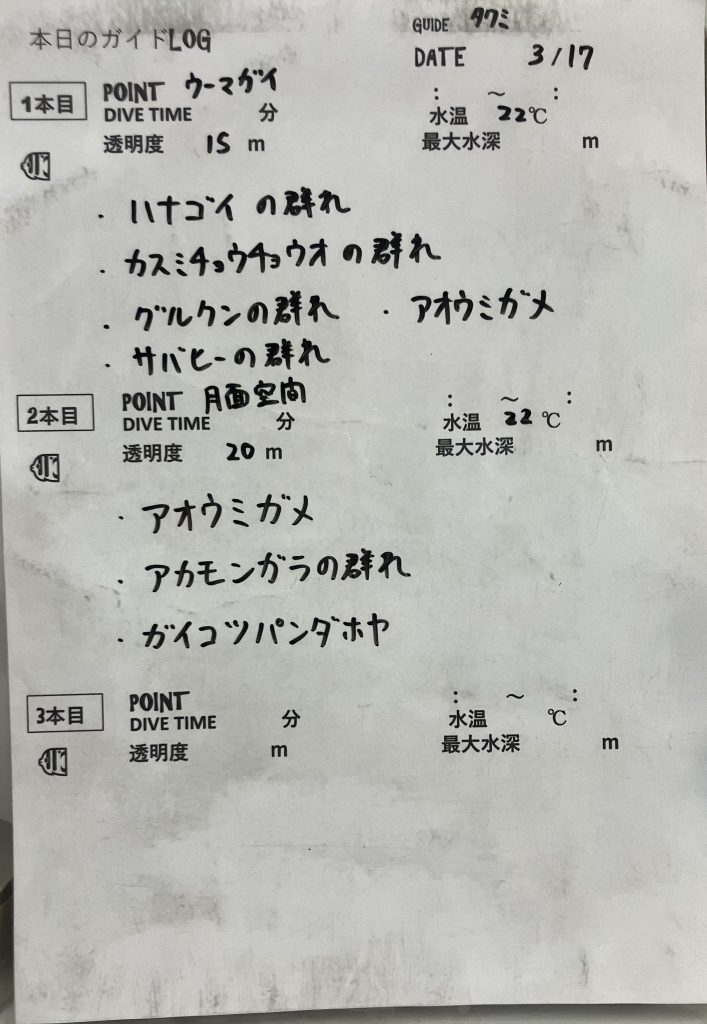 本日のガイドLOG
GUIDE タクミ
DATE 3/17
1本目
POINT ウーマガイ
: ～ :
DIVE TIME 分
水温 22℃
透明度 15 m
最大水深 m
・ハナゴイの群れ
・カスミチョウチョウオの群れ
・グルクンの群れ ・アオウミガメ
・サバヒーの群れ
2本目
POINT 月面空間
: ～ :
DIVE TIME 分
水温 22℃
透明度 20 m
最大水深 m
・アオウミガメ
・アカモンガラの群れ
・ガイコツパンダホヤ
3本目
POINT
: ～ :
DIVE TIME 分
水温 ℃
透明度 m
最大水深 m